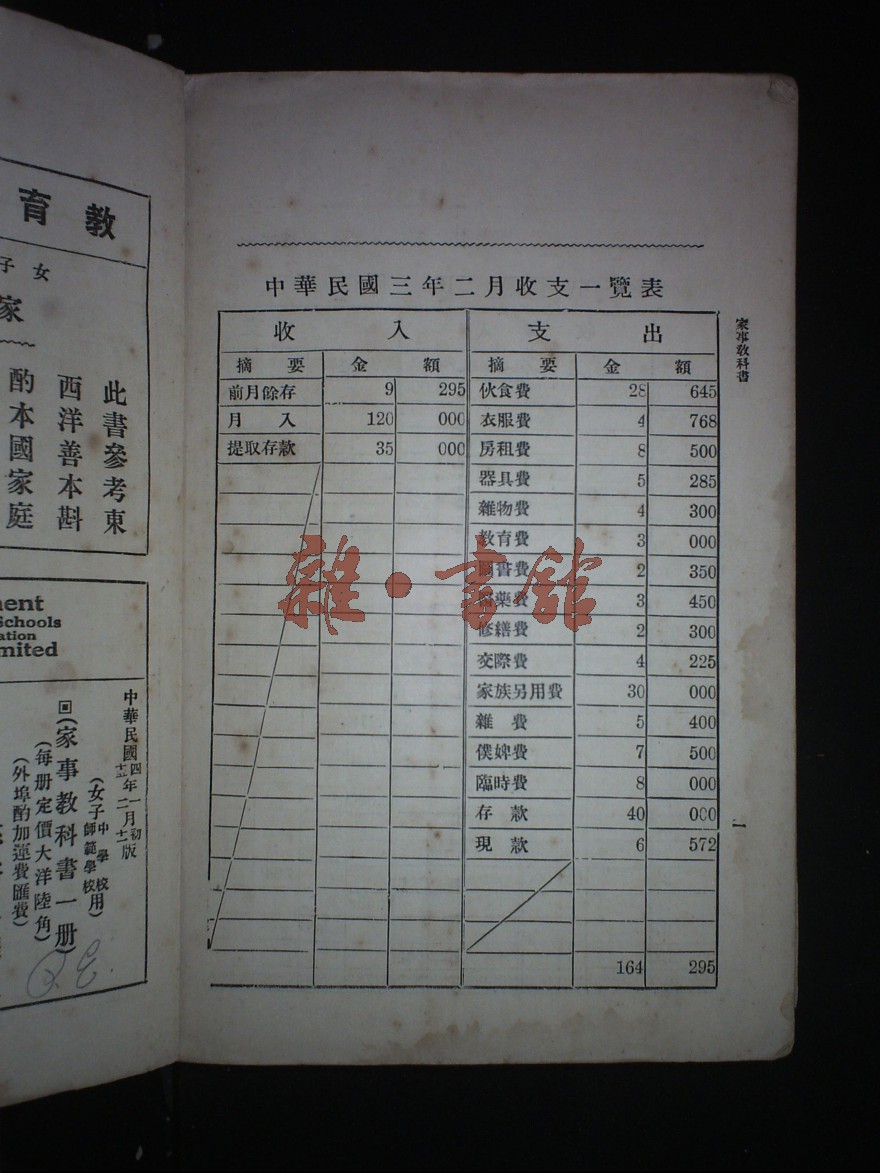 中華民國三年二月收支一覽表
收入 支出
摘要 金額 摘要 金額
前月餘存 9 295 伙食費 28 645
月入 120 000 衣服費 4 768
提取存款 35 000 房租費 8 500
器具費 5 285
雜物費 4 300
教育費 3 000
圖書費 2 350
醫藥費 3 450
修繕費 2 300
交際費 4 225
家族另用費 30 000
雜費 5 400
僕婢費 7 500
臨時費 8 000
存款 40 000
現款 6 572
164 295
家事教科書
一
雜·書館
教育
女子
家
此書參考東
西洋善本斟
酌本國家庭
ment
Schools
ation
mited
中華民國四年一月初版
十五年二月十二版
(女子中學校師範學校用)
(家事教科書一册)
(每册定價大洋陸角)
(外埠酌加運費匯費)